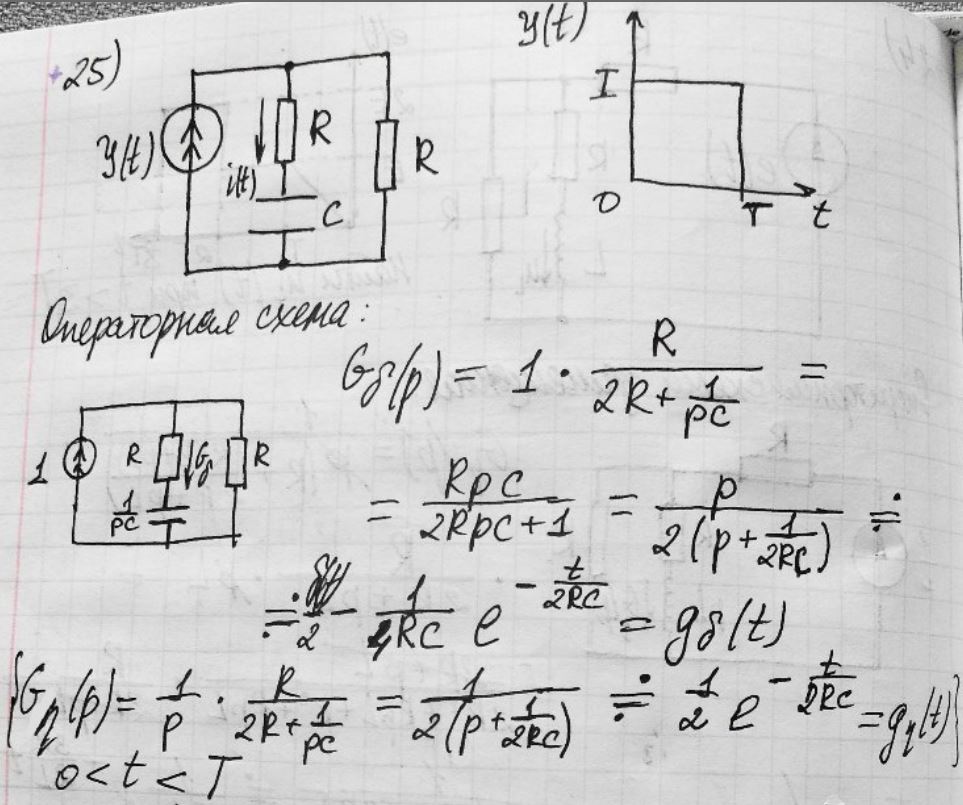 25)
Y(t)
i(t)
R
C
R
Y(t)
I
0
T
t
Операторная схема:
1
R
1/pC
Gδ
R
Gδ(p) = 1 · R/(2R + 1/pC) =
= RpC/(2RpC + 1) = p/(2(p + 1/2RC)) ≑
≑ δ(t)/2 - 1/4RC e^(-t/2RC) = gδ(t)
{G₁(p) = 1/p · R/(2R + 1/pC) = 1/(2(p + 1/2RC)) ≑ 1/2 e^(-t/2RC) = g₁(t)}
0 < t < T